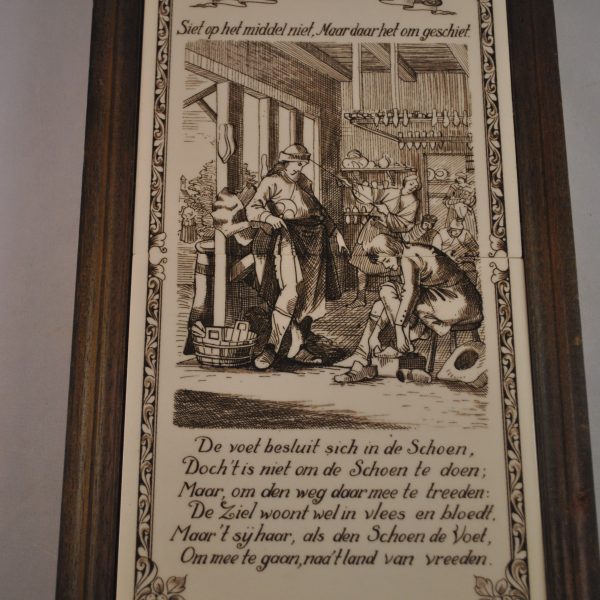 Siet op het middel niet, Maar daar het om geschiet.
De voet besluit sich in de Schoen,
Doch't is niet om de Schoen te doen;
Maar, om den weg daar mee te treeden:
De Ziel woont wel in vlees en bloedt,
Maar't sy haar, als den Schoen de Voet,
Om mee te gaan, naa't land van vreeden.